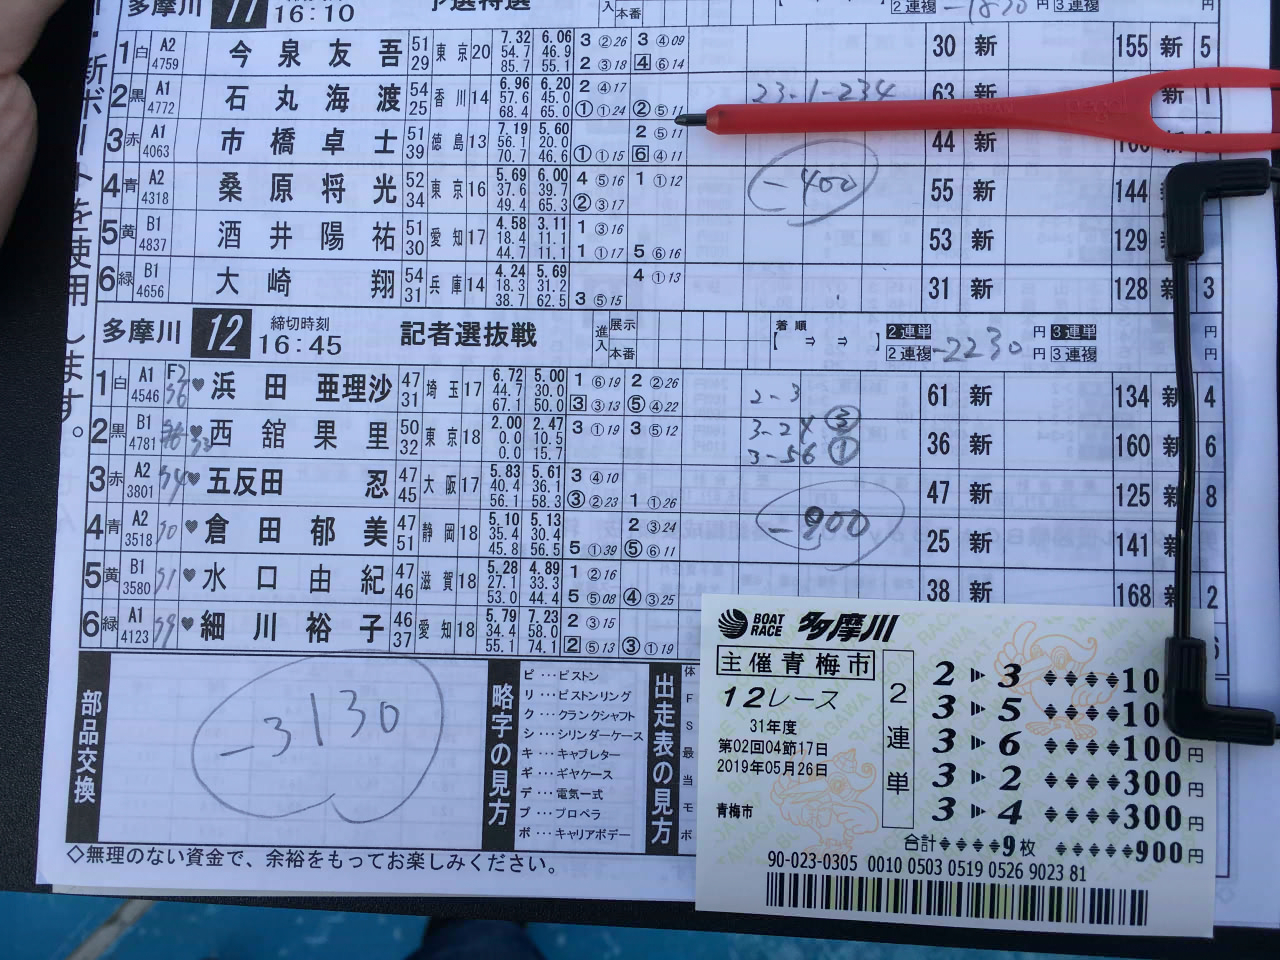 多摩川 11 締切時刻 16:10 予選特選
進入 本番
2連複 -1830 円 3連複 円
新ボートを使用します。
1 白 A2 4759 今泉友吾 51 29 東京 20 7.32 54.7 85.7 6.06 46.9 55.1 3 ②26 2 ③18 3 ④09 4 ⑥14 30 新 155 新 5
2 黒 A1 4772 石丸海渡 54 25 香川 14 6.96 57.6 68.4 6.20 45.0 65.0 2 ④17 ① ①24 ② ⑤11 23-1-234 63 新 1
3 赤 A1 4063 市橋卓士 51 39 徳島 13 7.19 56.1 70.7 5.60 20.0 46.6 ① ①15 2 ⑤11 6 ④11 44 新
4 青 A2 4318 桑原将光 52 34 東京 16 5.69 37.6 49.4 6.00 39.7 65.3 4 ⑤16 ② ③17 1 ①12 -400 55 新 144
5 黄 B1 4837 酒井陽祐 51 30 愛知 17 4.58 18.4 44.7 3.11 11.1 11.1 1 ③16 1 ①17 5 ⑥16 53 新 129
6 緑 B1 4656 大崎翔 54 31 兵庫 14 4.24 18.3 38.7 5.69 31.2 62.5 3 ⑤15 4 ①13 31 新 128 3
多摩川 12 締切時刻 16:45 記者選抜戦 進入 展示 本番 着順 [ ⇒ ⇒ ] 2連単 2連複 -2230 円 円 3連単 3連複 円 円
1 白 A1 4546 F2 ♥浜田亜理沙 47 31 埼玉 17 6.72 44.7 67.1 5.00 30.0 50.0 1 ⑥19 3 ③13 2 ②26 ⑤ ④22 2-3 61 新 134 4
2 黒 B1 4781 33 ♥西舘果里 50 32 東京 18 2.00 0.0 0.0 2.47 10.5 15.7 3 ①19 3 ⑤12 3-24 ③ 3-56 ① 36 新 160 6
3 赤 A2 3801 54 ♥五反田忍 47 45 大阪 17 5.83 40.4 56.1 5.61 36.1 58.3 3 ④10 ③ ②23 1 ①26 47 新 125 8
4 青 A2 3518 50 ♥倉田郁美 47 51 静岡 18 5.10 35.4 45.8 5.13 30.4 56.5 5 ①39 2 ③24 ⑤ ⑥11 -900 25 新 141
5 黄 B1 3580 51 ♥水口由紀 47 46 滋賀 18 5.28 27.1 53.0 4.89 33.3 44.4 1 ②16 5 ⑤08 ④ ③25 38 新 168 2
6 緑 A1 4123 59 ♥細川裕子 46 37 愛知 18 5.79 34.4 55.1 7.23 58.0 74.1 2 ③15 2 ⑤13 ③ ①19
部品交換
-3130
略字の見方
ピ…ピストン
リ…ピストンリング
ク…クランクシャフト
シ…シリンダーケース
キ…キャブレター
ギ…ギヤケース
デ…電気一式
プ…プロペラ
ボ…キャリアボデー
出走表の見方
体
F
S
最
当
モ
ボ
◇無理のない資金で、余裕をもってお楽しみください。
BOAT RACE 多摩川
主催青梅市
12レース
31年度
第02回04節17日
2019年05月26日
青梅市
2連単
2 ▶ 3 ◆◆◆◆10
3 ▶ 5 ◆◆◆◆10
3 ▶ 6 ◆◆◆◆100円
3 ▶ 2 ◆◆◆◆300円
3 ▶ 4 ◆◆◆◆300円
合計◆◆◆◆9枚 ◆◆◆◆◆900円
90-023-0305 0010 0503 0519 0526 9023 81